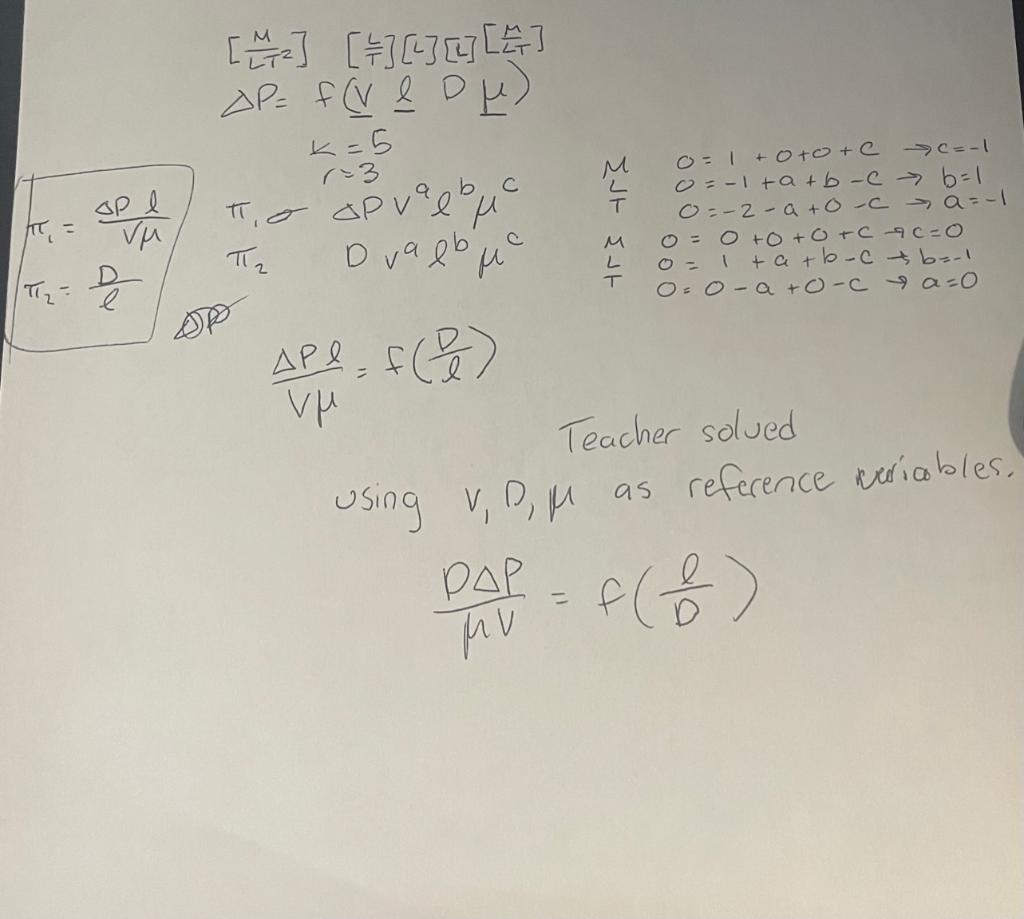 [M/LT²] [L/T][L][L][M/LT]
ΔP = f(V ℓ D μ)
K = 5
r = 3
π₁ ΔP V^a ℓ^b μ^c
π₂ D V^a ℓ^b μ^c
M 0 = 1 + 0 + 0 + c → c = -1
L 0 = -1 + a + b - c → b = 1
T 0 = -2 - a + 0 - c → a = -1
M 0 = 0 + 0 + 0 + c → c = 0
L 0 = 1 + a + b - c → b = -1
T 0 = 0 - a + 0 - c → a = 0
π₁ = ΔP ℓ / Vμ
π₂ = D / ℓ
ΔP ℓ / Vμ = f(D/ℓ)
Teacher solved
using V, D, μ as reference variables.
DΔP / μV = f(ℓ/D)